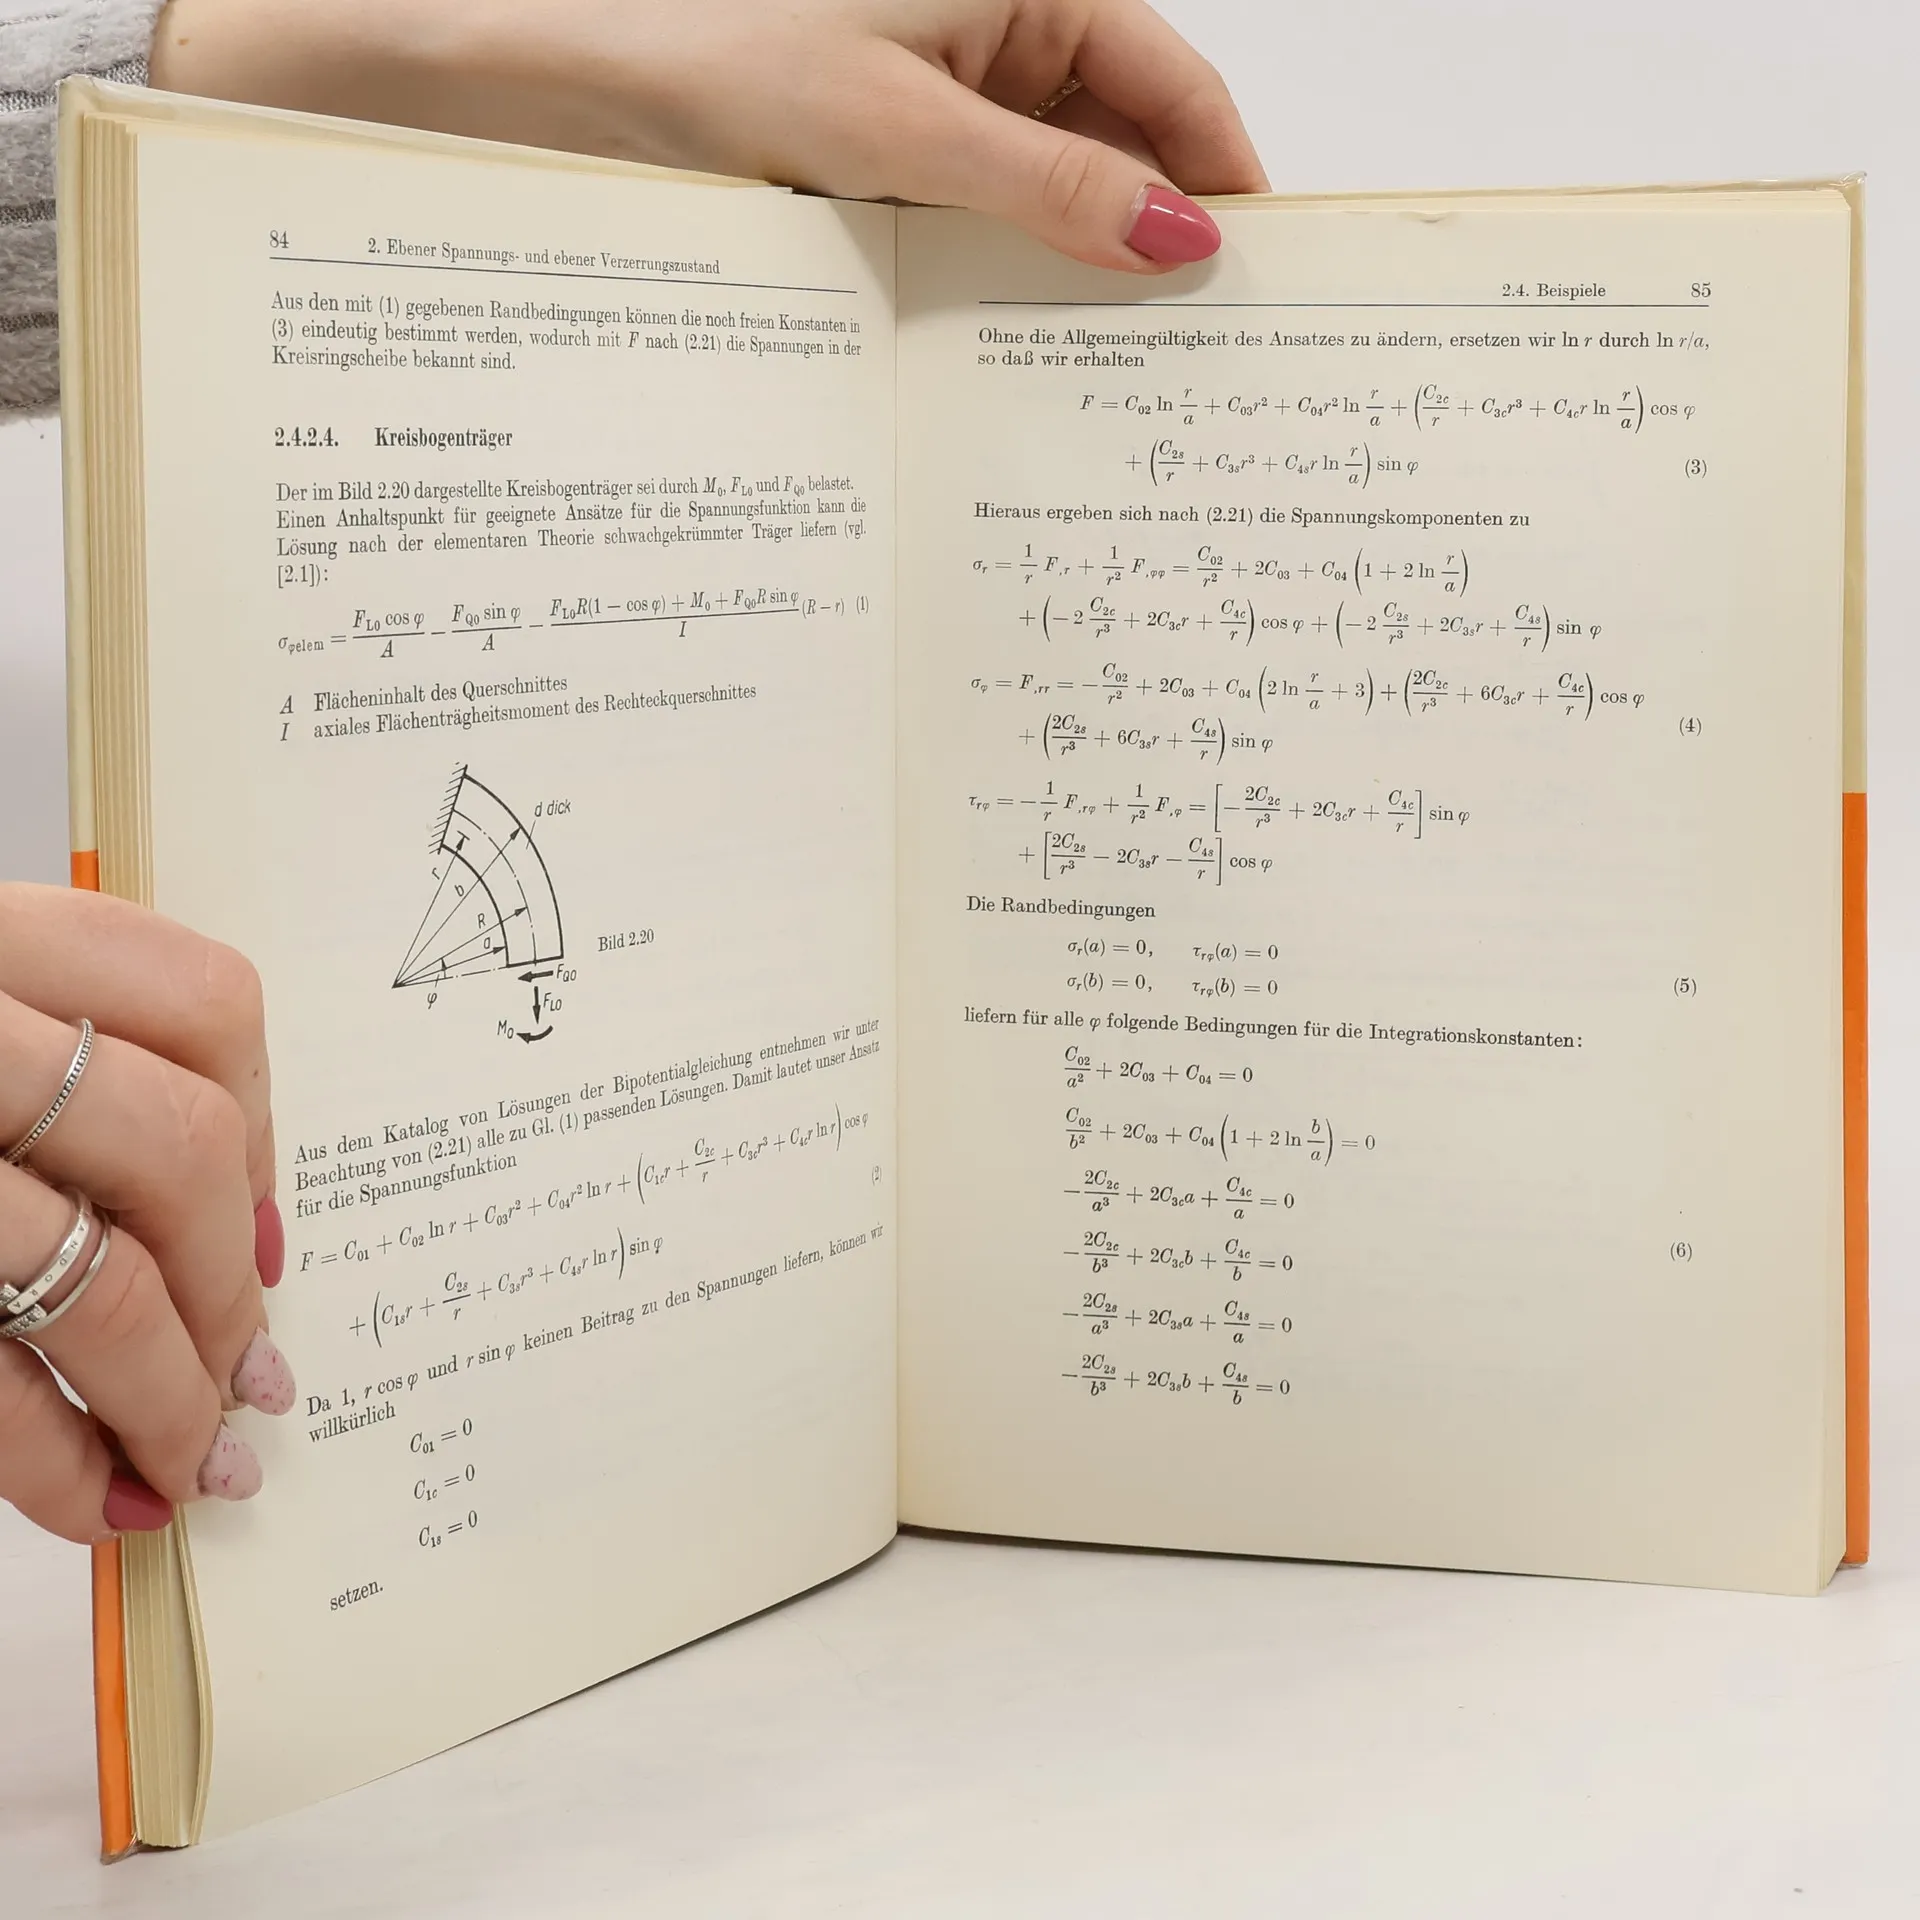 84 2. Ebener Spannungs- und ebener Verzerrungszustand
Aus den mit (1) gegebenen Randbedingungen können die noch freien Konstanten in
(3) eindeutig bestimmt werden, wodurch mit F nach (2.21) die Spannungen in der
Kreisringscheibe bekannt sind.
2.4.2.4. Kreisbogenträger
Der im Bild 2.20 dargestellte Kreisbogenträger sei durch M₀, F_L0 und F_Q0 belastet.
Einen Anhaltspunkt für geeignete Ansätze für die Spannungsfunktion kann die
Lösung nach der elementaren Theorie schwachgekrümmter Träger liefern (vgl.
[2.1]):
σ_φelem = F_L0 cos φ / A − F_Q0 sin φ / A − (F_L0 R(1 − cos φ) + M₀ + F_Q0 R sin φ) / I (R − r) (1)
A Flächeninhalt des Querschnittes
I axiales Flächenträgheitsmoment des Rechteckquerschnittes
d dick
r
b
R
a
φ
F_Q0
F_L0
M₀
Bild 2.20
Aus dem Katalog von Lösungen der Bipotentialgleichung entnehmen wir unter
Beachtung von (2.21) alle zu Gl. (1) passenden Lösungen. Damit lautet unser Ansatz
für die Spannungsfunktion
F = C₀₁ + C₀₂ ln r + C₀₃r² + C₀₄r² ln r + (C₁c r + C₂c/r + C₃c r³ + C₄c r ln r) cos φ
+ (C₁s r + C₂s/r + C₃s r³ + C₄s r ln r) sin φ (2)
Da 1, r cos φ und r sin φ keinen Beitrag zu den Spannungen liefern, können wir
willkürlich
C₀₁ = 0
C₁c = 0
C₁s = 0
setzen.
2.4. Beispiele 85
Ohne die Allgemeingültigkeit des Ansatzes zu ändern, ersetzen wir ln r durch ln r/a,
so daß wir erhalten
F = C₀₂ ln r/a + C₀₃r² + C₀₄r² ln r/a + (C₂c/r + C₃c r³ + C₄c r ln r/a) cos φ
+ (C₂s/r + C₃s r³ + C₄s r ln r/a) sin φ (3)
Hieraus ergeben sich nach (2.21) die Spannungskomponenten zu
σ_r = 1/r F,_r + 1/r² F,_φφ = C₀₂/r² + 2C₀₃ + C₀₄ (1 + 2 ln r/a)
+ (−2 C₂c/r³ + 2C₃c r + C₄c/r) cos φ + (−2 C₂s/r³ + 2C₃s r + C₄s/r) sin φ
σ_φ = F,_rr = −C₀₂/r² + 2C₀₃ + C₀₄ (2 ln r/a + 3) + (2C₂c/r³ + 6C₃c r + C₄c/r) cos φ
+ (2C₂s/r³ + 6C₃s r + C₄s/r) sin φ (4)
τ_rφ = −1/r F,_rφ + 1/r² F,_φ = [−2C₂c/r³ + 2C₃c r + C₄c/r] sin φ
+ [2C₂s/r³ − 2C₃s r − C₄s/r] cos φ
Die Randbedingungen
σ_r(a) = 0, τ_rφ(a) = 0
σ_r(b) = 0, τ_rφ(b) = 0 (5)
liefern für alle φ folgende Bedingungen für die Integrationskonstanten:
C₀₂/a² + 2C₀₃ + C₀₄ = 0
C₀₂/b² + 2C₀₃ + C₀₄ (1 + 2 ln b/a) = 0
−2C₂c/a³ + 2C₃c a + C₄c/a = 0
−2C₂c/b³ + 2C₃c b + C₄c/b = 0 (6)
−2C₂s/a³ + 2C₃s a + C₄s/a = 0
−2C₂s/b³ + 2C₃s b + C₄s/b = 0